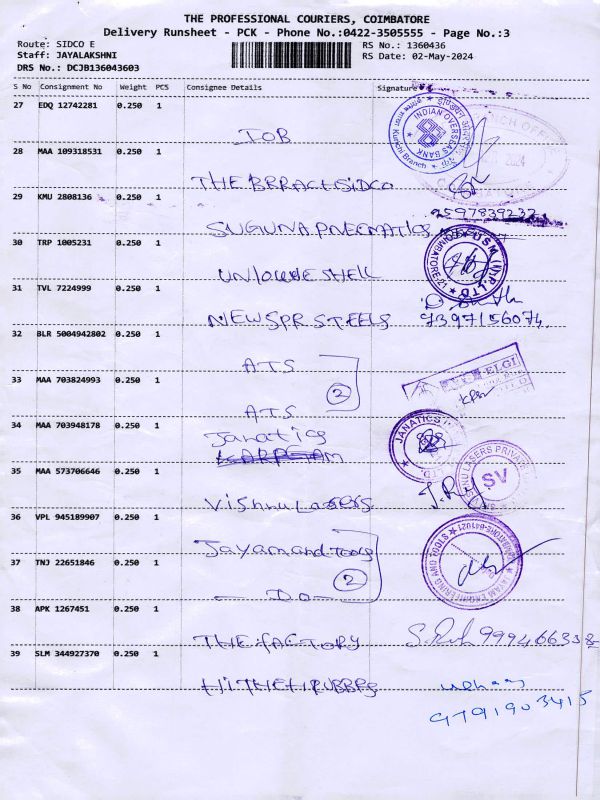 THE PROFESSIONAL COURIERS, COIMBATORE
Delivery Runsheet - PCK - Phone No.:0422-3505555 - Page No.:3
Route: SIDCO E
Staff: JAYALAKSHNI
DRS No.: DCJB136043603
RS No.: 1360436
RS Date: 02-May-2024
S No Consignment No Weight PCS Consignee Details Signature
27 EDQ 12742281 0.250 1
IOB
INDIAN OVERSEAS BANK
Kurichi Branch
28 MAA 109318531 0.250 1
THE BRRACT SIDCO
2024
29 KMU 2808136 0.250 1
9597839232
SUGUNA PNEMATICS
30 TRP 1005231 0.250 1
SHELL
31 TVL 7224999 0.250 1
NEWSPR STEELS
9397156074.
32 BLR 5004942802 0.250 1
ATS
33 MAA 703824993 0.250 1
2
ELGI
ATS
34 MAA 703948178 0.250 1
Janatics
JANATICS
35 MAA 573706646 0.250 1
LASERS PRIVATE
SV
Vishnu Lasers
36 VPL 945189907 0.250 1
Jayam and Tools
37 TNJ 22651846 0.250 1
2
JAYAM ENGINEERING AND TOOLS
DO
38 APK 1267451 0.250 1
THE FACTORY
39 SLM 344927370 0.250 1
9791903415